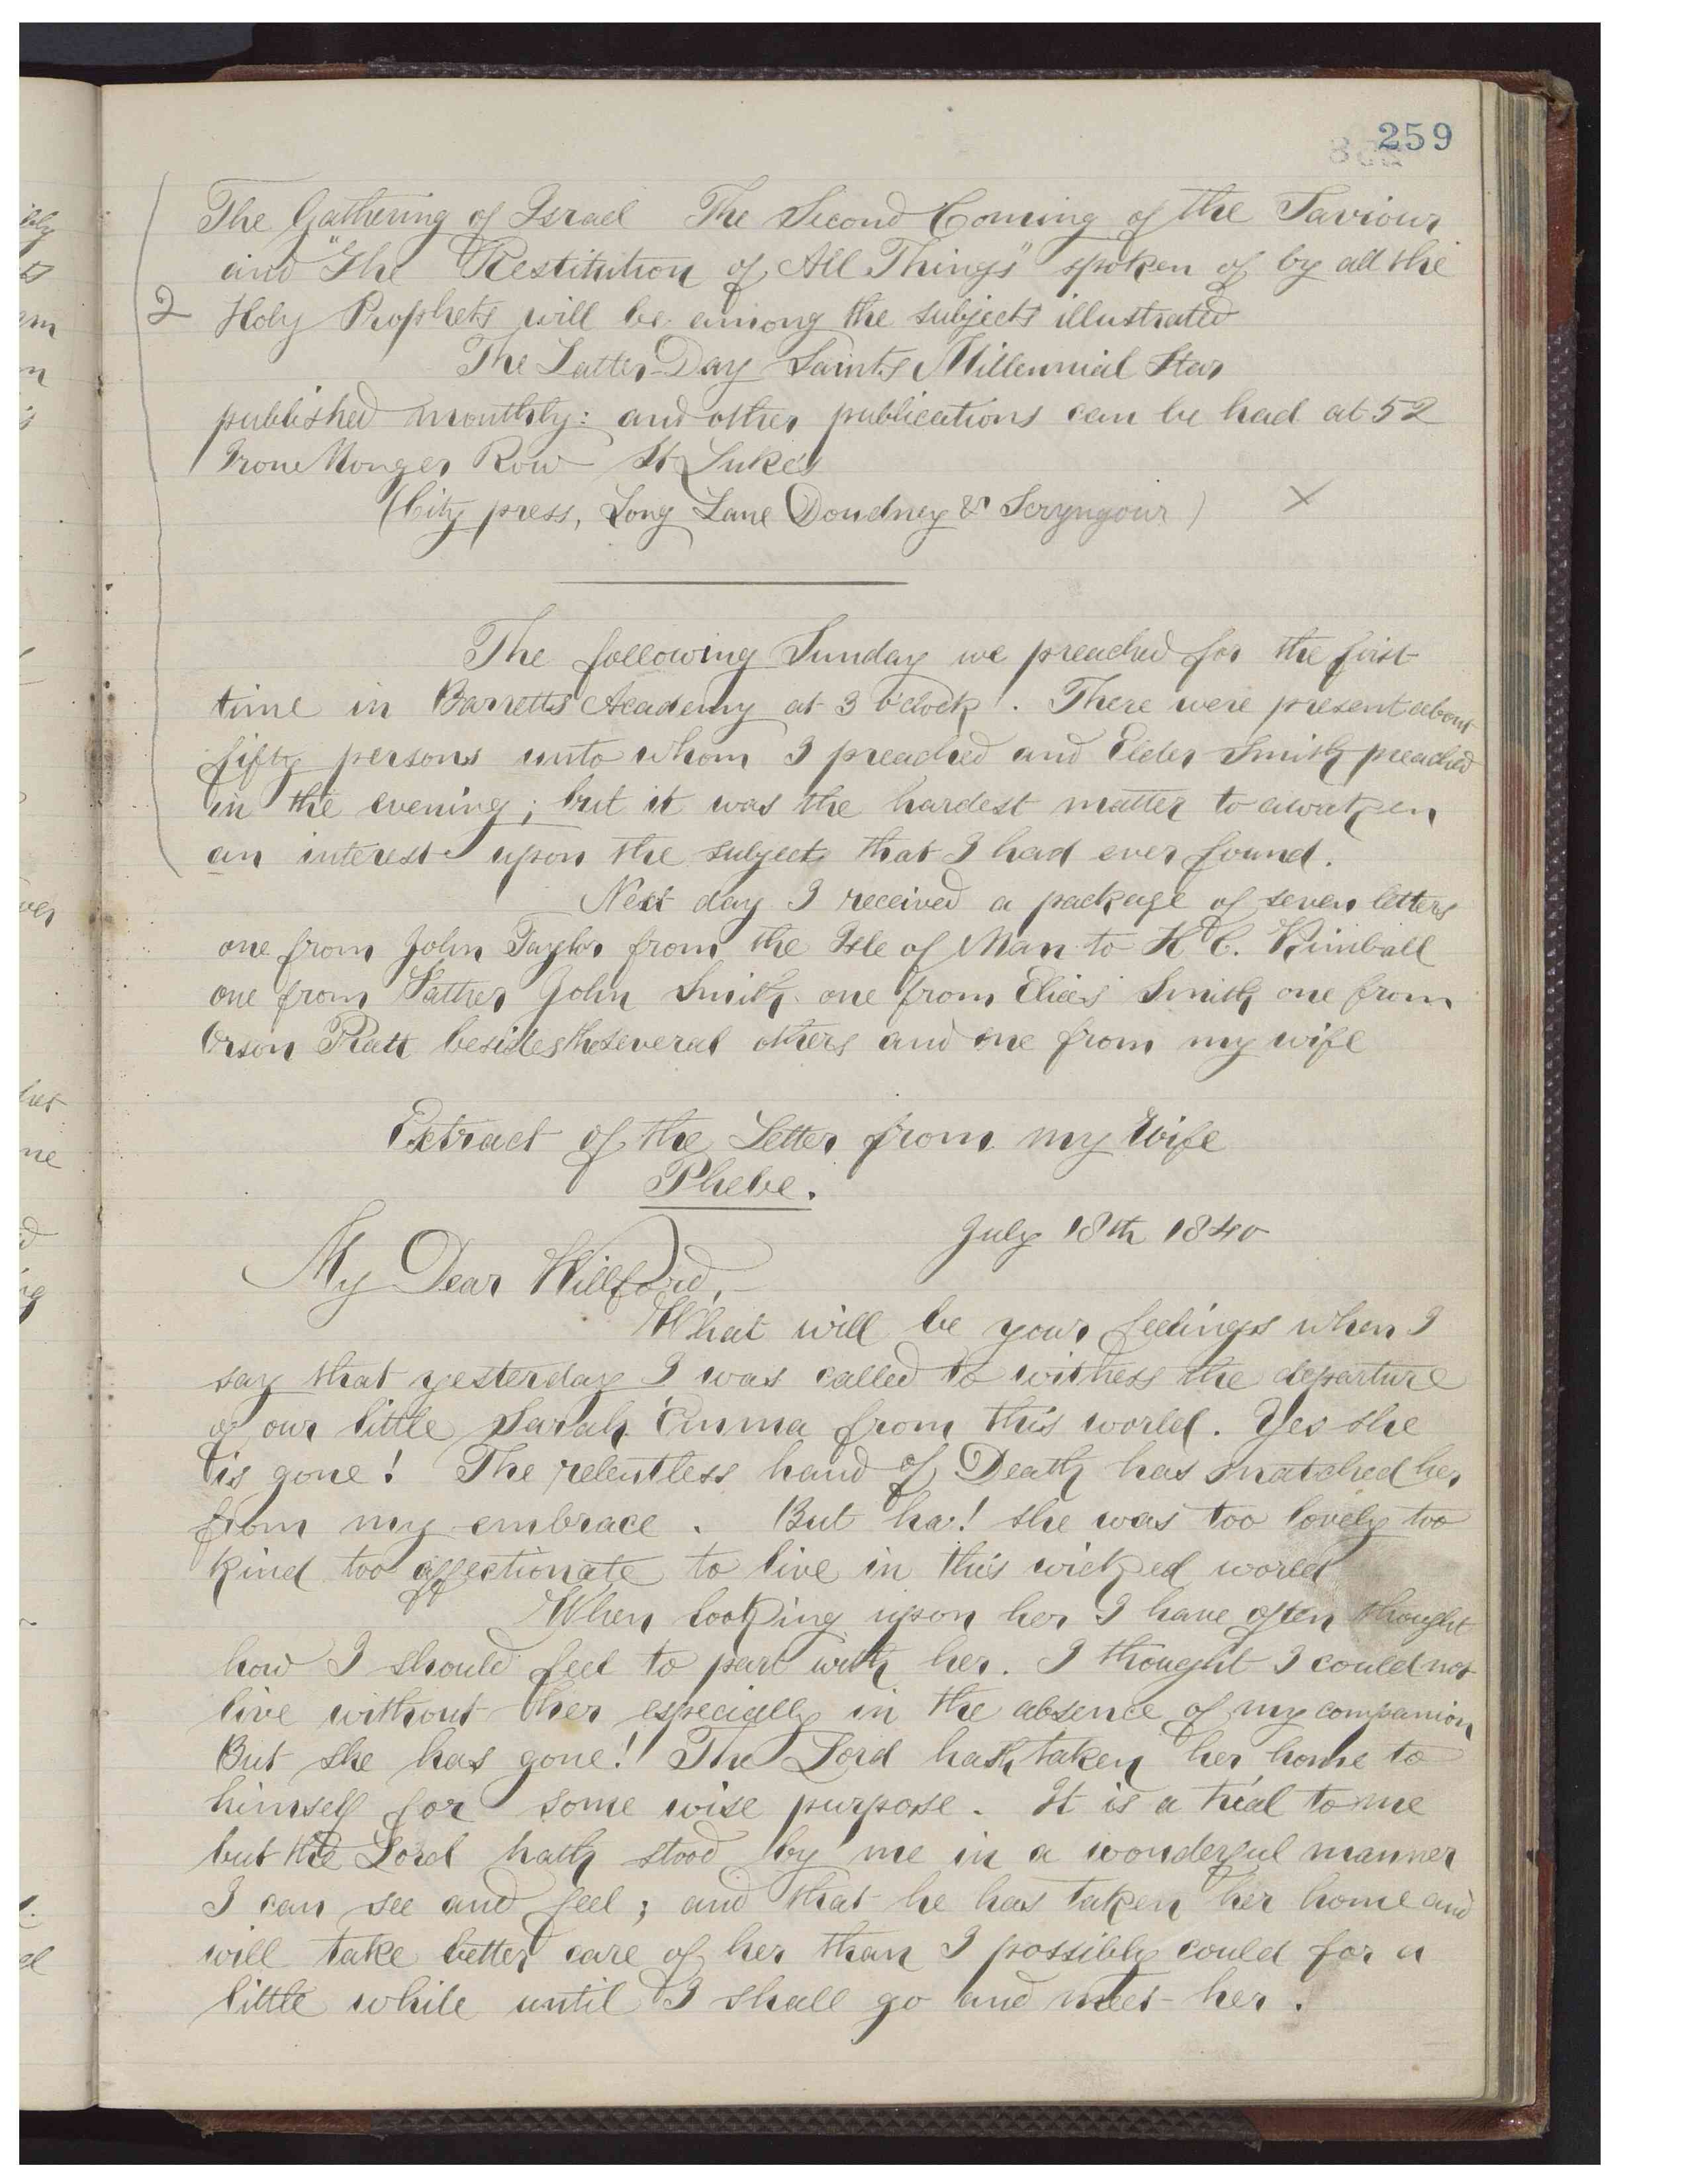 259
The Gathering of Israel The Second Coming of the Saviour
and "The Restitution of All Things" spoken of by all the
2 Holy Prophets will be among the subjects illustrated
The Latter-Day Saints Millennial Star
published monthly: and other publications can be had at 52
Irone Monger Row St Luke's
(City press, Long Lane Doudney & Scryngour) X
The following Sunday we preached for the first
time in Barretts Academy at 3 o'clock. There were present about
fifty persons unto whom I preached and Elder Smith preached
in the evening; but it was the hardest matter to awaken
an interest upon the subject that I had ever found.
Next day I received a package of seven letters
one from John Taylor from the Isle of Man to H C. Kimball
one from Father John Smith one from Elias Smith one from
Orson Pratt besides the several others and one from my wife
Extract of the Letter from my Wife
Phebe.
July 18th 1840
My Dear Willford,
What will be your feelings when I
say that yesterday I was called to witness the departure
of our little Sarah Emma from this world. Yes she
is gone! The relentless hand of Death has snatched her
from my embrace. But ha! she was too lovely too
kind too affectionate to live in this wicked world
When looking upon her I have often thought
how I should feel to part with her. I thought I could not
live without her especially in the absence of my companion
But she has gone! The Lord hath taken her home to
himself for some wise purpose. It is a trial to me
but the Lord hath stood by me in a wonderful manner
I can see and feel; and that he has taken her home and
will take better care of her than I possibly could for a
little while until I shall go and meet her.